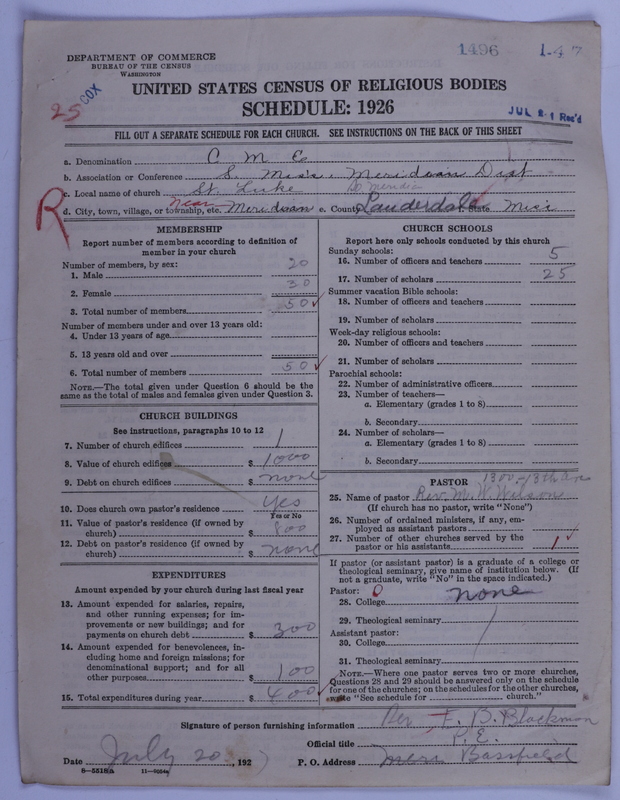 1496 1-47
DEPARTMENT OF COMMERCE
BUREAU OF THE CENSUS
WASHINGTON
25 COX
UNITED STATES CENSUS OF RELIGIOUS BODIES
SCHEDULE: 1926
JUL 2-1 Rec'd
FILL OUT A SEPARATE SCHEDULE FOR EACH CHURCH. SEE INSTRUCTIONS ON THE BACK OF THIS SHEET
a. Denomination C M E
b. Association or Conference S. Miss. Meridoan Dist
c. Local name of church St. Luke
R
d. City, town, village, or township, etc. near Meridoan e. County Lauderdale State Miss
MEMBERSHIP
Report number of members according to definition of member in your church
Number of members, by sex:
1. Male 20
2. Female 30
3. Total number of members 50
Number of members under and over 13 years old:
4. Under 13 years of age
5. 13 years old and over
6. Total number of members 50
NOTE.—The total given under Question 6 should be the
same as the total of males and females given under Question 3.
CHURCH BUILDINGS
See instructions, paragraphs 10 to 12
7. Number of church edifices 1
8. Value of church edifices $ 1000
9. Debt on church edifices $ none
10. Does church own pastor's residence yes
Yes or No
11. Value of pastor's residence (if owned by
church) $ 800
12. Debt on pastor's residence (if owned by
church) $ none
EXPENDITURES
Amount expended by your church during last fiscal year
13. Amount expended for salaries, repairs,
and other running expenses; for im-
provements or new buildings; and for
payments on church debt $ 300
14. Amount expended for benevolences, in-
cluding home and foreign missions; for
denominational support; and for all
other purposes $ 100
15. Total expenditures during year $ 400
CHURCH SCHOOLS
Report here only schools conducted by this church
Sunday schools:
16. Number of officers and teachers 5
17. Number of scholars 25
Summer vacation Bible schools:
18. Number of officers and teachers
19. Number of scholars
Week-day religious schools:
20. Number of officers and teachers
21. Number of scholars
Parochial schools:
22. Number of administrative officers
23. Number of teachers—
a. Elementary (grades 1 to 8)
b. Secondary
24. Number of scholars—
a. Elementary (grades 1 to 8)
b. Secondary
PASTOR
1300-13th Ave
25. Name of pastor Rev. M. W. Wilson
(If church has no pastor, write "None")
26. Number of ordained ministers, if any, em-
ployed as assistant pastors
27. Number of other churches served by the
pastor or his assistants 1
If pastor (or assistant pastor) is a graduate of a college or
theological seminary, give name of institution below. (If
not a graduate, write "No" in the space indicated.)
Pastor: 0
28. College none
29. Theological seminary
Assistant pastor:
30. College
31. Theological seminary
NOTE.—Where one pastor serves two or more churches,
Questions 28 and 29 should be answered only on the schedule
for one of the churches; on the schedules for the other churches,
write "See schedule for church."
Signature of person furnishing information Rev F. B. Blackmon
Official title P. E.
Date July 20, 192 P. O. Address Bassfield
8-5518a 11-9204a